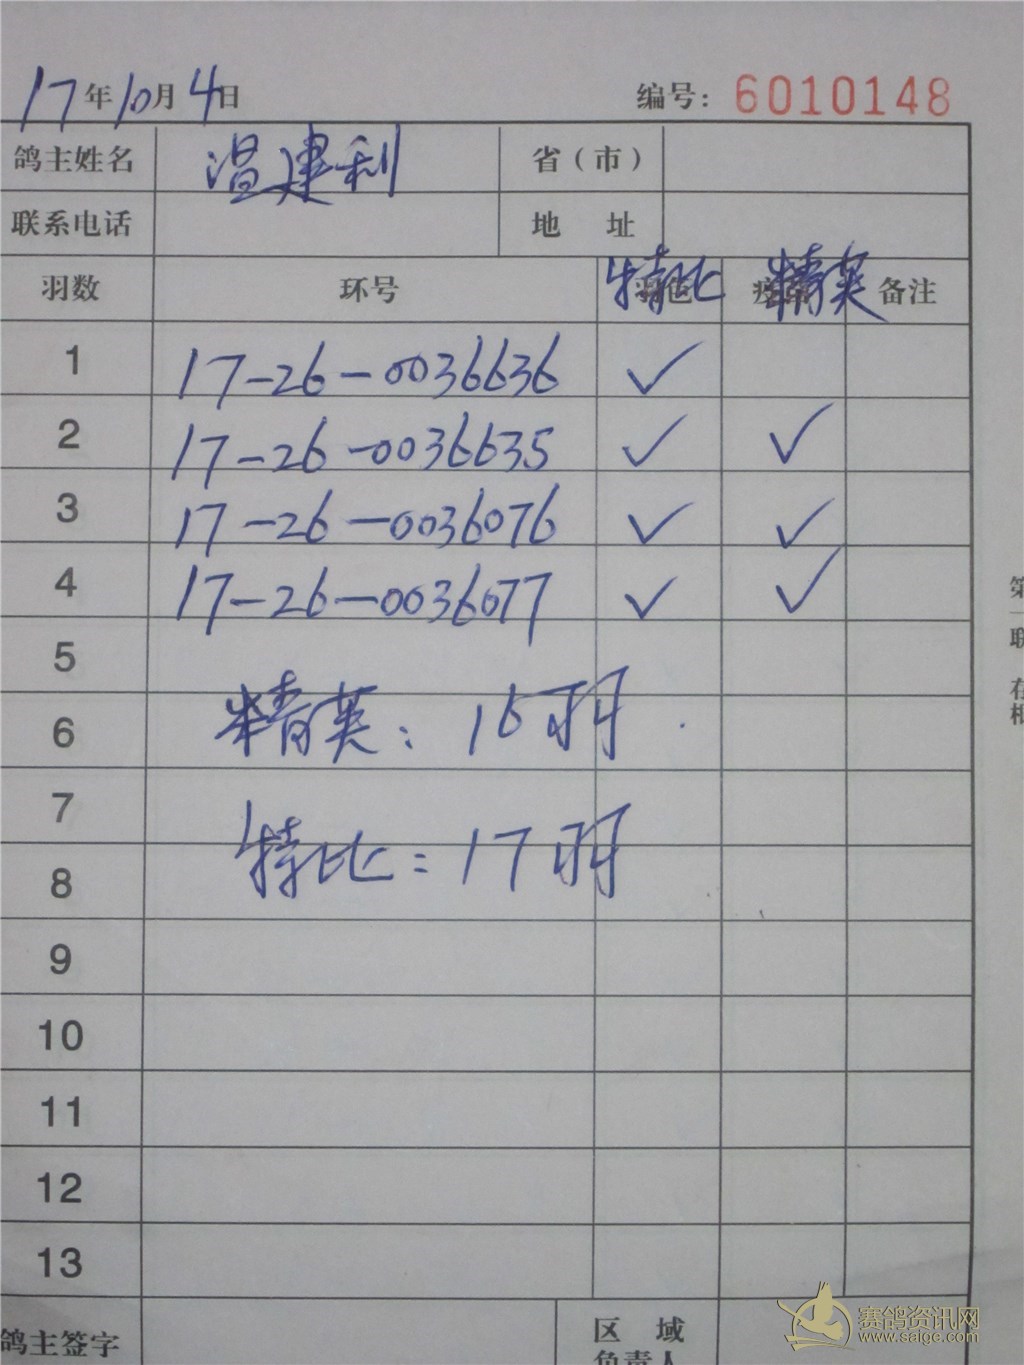 17年10月4日 编号: 6010148
鸽主姓名 温建利 省(市)
联系电话 地 址
羽数 环号 特比 精英 备注
1 17-26-0036636 ✓
2 17-26-0036635 ✓ ✓
3 17-26-0036076 ✓ ✓
4 17-26-0036077 ✓ ✓
5
精英: 16羽
6
7
特比: 17羽
8
9
10
11
12
13
鸽主签字 区 域
负责人
第一联
赛鸽资讯网
www.saige.com